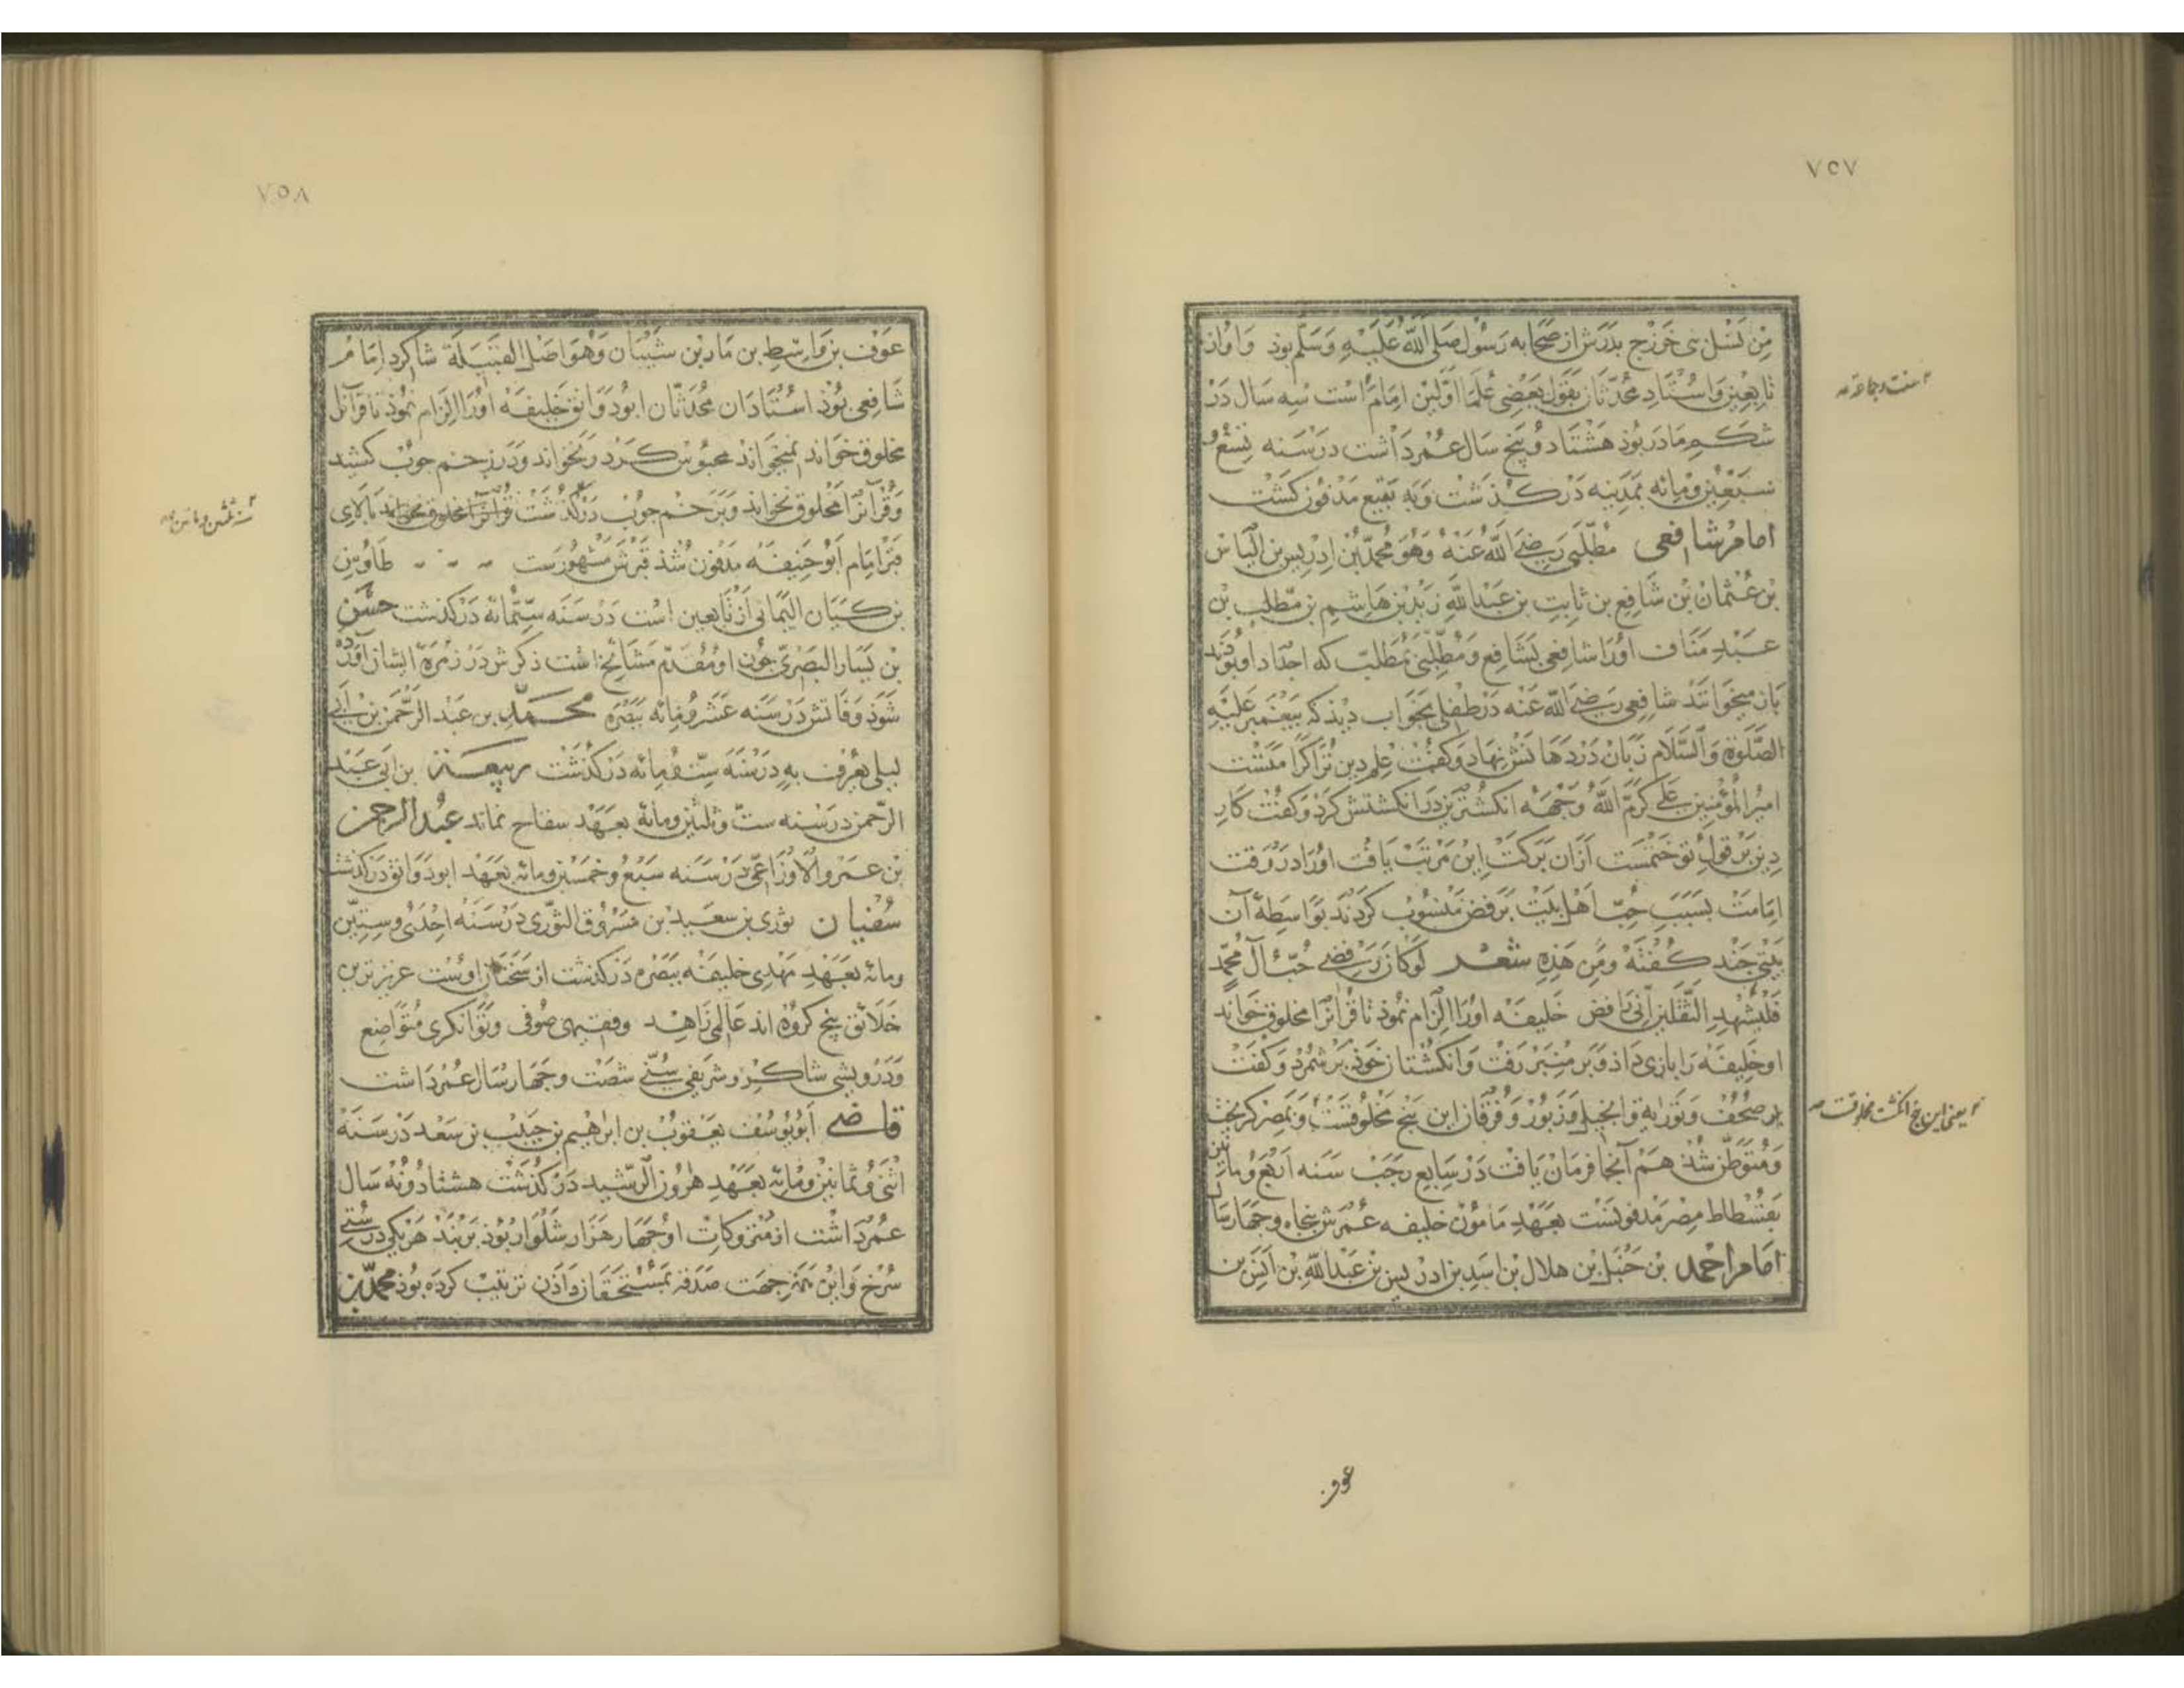 ٧٥٧
مِن نَسْل بنی خَزْرج بَدَرَش از صَحابه رَسُول صَلی اللّه عَلَیْهِ وَسَلّم بوذ وَاو از
تابِعین وَاسُتادِ محُدّثان بقَول بَعْضِی عُلَما اَوّلین اِمام اَست سِه سَال دَرْ
شکم مَادَر بُوذ هَشْتاد وُپنج سَال عمُرْ دَاشت درسَنه تِسْعٍ وُ
سَبْعِیْن وَمِائه بمَدِینه دَرْکذشت وَبه بَقیع مَدْفوُن کشت
امامر شافعی مُطّلبی رَضیَ اللّهُ عَنهُ وَهُوَ مُحمّد بْن اِدْرِیس بن الیاس
بن عُثمان بْن شَافِع بن ثابِتِ بن عَبْداللّه زیْد بن هَاشِم بن مطّلب بْن
عَبْدِ مَنَاف اوُرا شافعی بشَافِع وَمُطّلبیْ بمُطلبّ که اجْدادِ او بوُدَند
بَاز میخوَانند شافعی رَضیَ اللّه عَنْه دَرْ طفلی بخوَاب دِیْذ که بَیْغمبر عَلَیْهِ
الصّلوةِ وَالسّلام زبان دَرْ دَهانش نهاد وَکفت عِلم دین تُرا کرامتَست
امیرُالمُؤمنین عَلی کرمّ اللّهُ وَجْهَه انکشُتَرین دَر انکشتش کرْد وَکفت کار
دِین بَرْ قول تو ختمست اَزان بَرکت این مَرْتبَت یافت اوُرا در وَقت
اِمَامَت بسَبَبَ حُبّ اَهل بَیْت برَفض مَنسُوب کردند بوَاسِطهٔ آن
بَیْتی چند کفته وَمِن هَذِه شعر لوکان رفضی حُبّ آل محُمّد
فَلْیَشْهَدِ الثقلین اَنی رَافض خَلیفه اورا الزام نموذ تا قُرآنرا مخلوق خوَاند
او خَلِیفه رَا بازی دَاذ وَبر مِنبَرْ رَفت وَانکشتان خوَذ برْ شمُرْد وَکفت
صُحُف وَتوْریة وَانجیل وَزبوُر وَفُرقان این پنج مخلُوقسَت وَبمِصْر کریخت
وَمُتوَطّن شد هَم آنجا فرمان یافت دَر سَابع رجَبْ سَنه اَرْبع وُماتین
بفُسْطاط مِصْر مَدفونسْت بعَهْدِ مَاموُن خلیفه عُمرش پنجاه وچهَار سال
امامر احْمد بن حَنبَل بْن هلال بن اسَد بن ادرِیس بن عَبْداللّه بْن اَنَس بن
سنت وجماعة صح
یعنی این پنج انکشت مخلوقست صح
عوف
٧٥٨
عَوْف بن وَاسِط بن مَازن بن شیْبَان وَهُوَ اصْل القبیلَة شاکرد اِمَام
شَافِعِی بُوْذ اسْتادَان محُدّثان ابوُدَوَانق خَلیفه اوُرا الزام نموُذ تا قُرآنرا
مخلوق خوَاند نمیخوَاند محبُوس کرْد نخوَاند وَدَر زخم جوُب کشید
وَقُرآنرَا مخلوق نخوَاند وَبَر خم جوُب دَرْکذشت قُرآنرا مخلوق نخوَاند بالای
قبر اِمَام اَبُو حَنِیْفَه مَدفون شُذ قبرش مشهُورَست طاوُس
بن کَیْسَان الیَمَانی اَز تابعین است دَر سَنَه سِتّمائه دَرکذشت حسَن
بْن یَسار البَصْریّ جُون او مُقدّم مَشائخ است ذکرش دَر زُمْرهٔ ایشان آورْده
شَوَذ وَفَاتش دَر سَنه عَشر وُمائه ببَصْره محمّد بن عَبْدالرّحمن بن اَبی
لیلی یعْرَف به دَر سَنه سِتّ وُمائه دَرکذشت ربیعة بن ابی عَبْد
الرّحمن در سَنه ستّ وثلثین ومائه بعَهْد سفاح نماند عَبْدالرحمن
بْن عَمْرو الاوْزَاعی دَرْ سَنه سَبْع وخمسْین ومائه بعَهْد ابودَوَانق دَرکذشت
سُفیان ثوری بن سعید بن مَسْرُوق الثوْری دَرْ سَنَه احْدی وسِتّین
ومائه بعَهْد مَهْدِی خلیفه ببَصْره دَرکذشت از سَخنان اوست عزیزترین
خلائق پنج کروُه اند عَالمی زَاهد وفقیهی صُوفی وَتوَانکری مُتوَاضِع
وَدَرْویشی شاکر وشریفی سُنّی شصَت وچهَار سَال عُمر دَاشت
قاضی اَبوُیوُسُف یَعْقوُب بن ابرهیم بن حبیب بن سَعْد دَرْسَنَه
اثنی وُثمانین وُمائه بعَهْد هرُون الرّشید دَرْکذشت هشتاد ونُه سَال
عمُر دَاشت از مَتروکات اوُ چهَار هَزار شلوَار بُوْذ برْ بند هَریکی درستی
سُرخ وَاین بهر جهت صدقه بمسُتحقان دَاذن ترتیب کرده بوُذ محمّد بن
سنه ثلثین وماتین صح